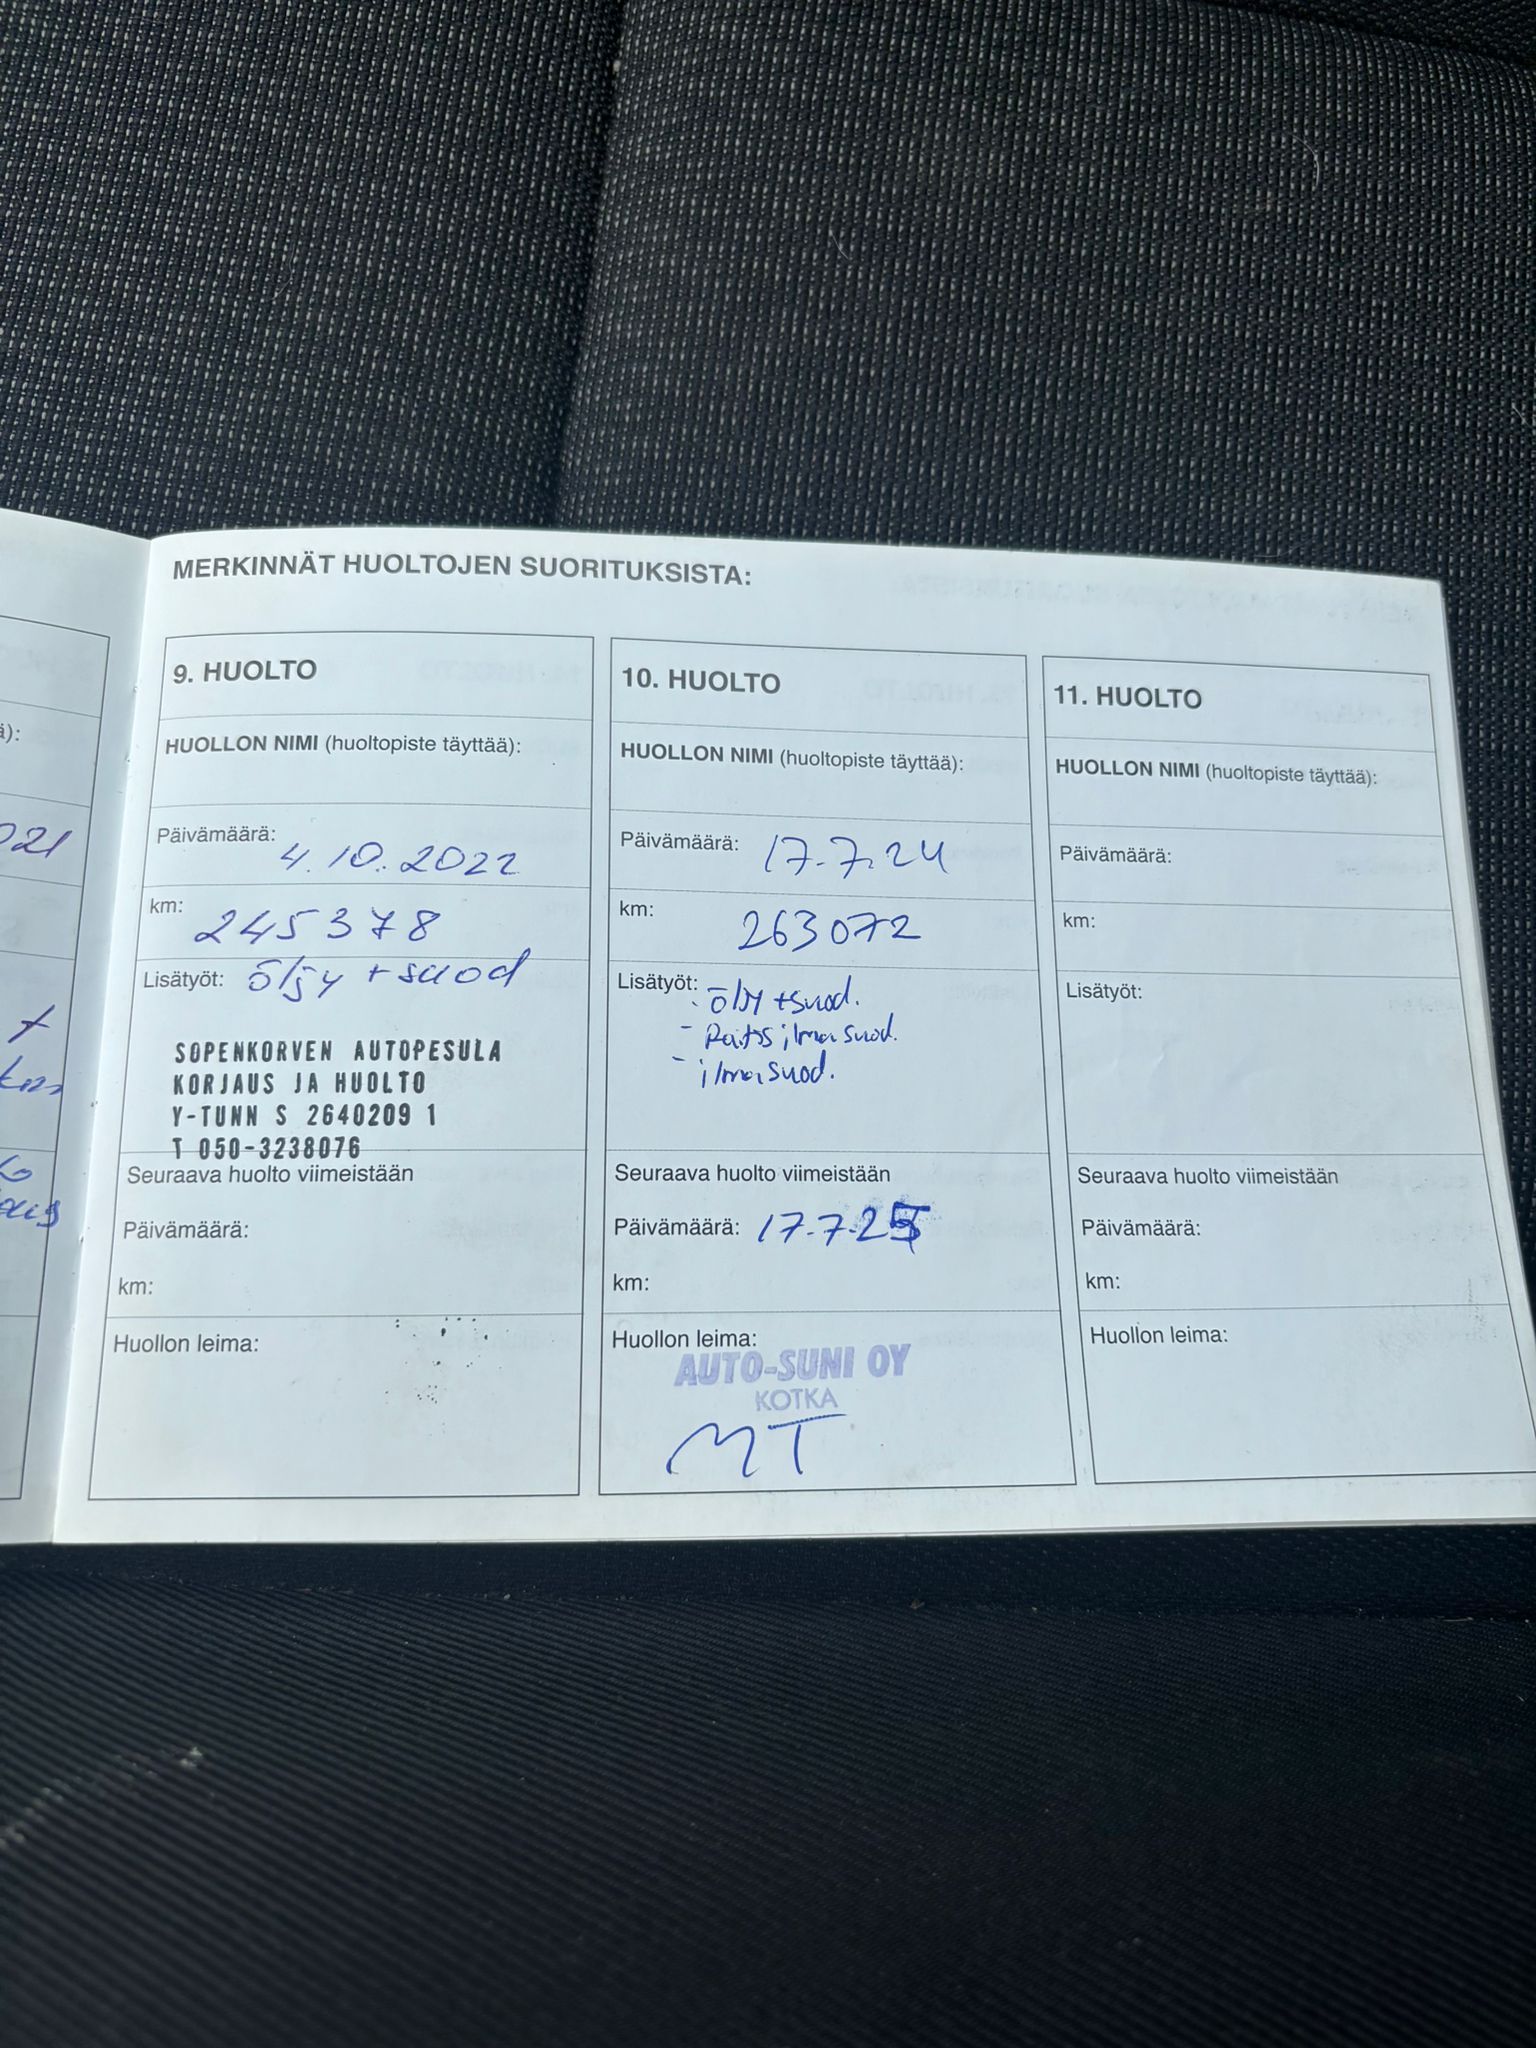 MERKINNÄT HUOLTOJEN SUORITUKSISTA:
ä):
021
9. HUOLTO
HUOLLON NIMI (huoltopiste täyttää):
Päivämäärä: 4.10.2022
km: 245378
Lisätyöt: öljy + suod
SOPENKORVEN AUTOPESULA
KORJAUS JA HUOLTO
Y-TUNN S 2640209 1
T 050-3238076
Seuraava huolto viimeistään
Päivämäärä:
km:
Huollon leima:
10. HUOLTO
HUOLLON NIMI (huoltopiste täyttää):
Päivämäärä: 17.7.24
km: 263072
Lisätyöt: - öljy + suod.
- Raitis ilma suod.
- ilmasuod.
Seuraava huolto viimeistään
Päivämäärä: 17.7.25
km:
Huollon leima:
AUTO-SUNI OY
KOTKA
MT
11. HUOLTO
HUOLLON NIMI (huoltopiste täyttää):
Päivämäärä:
km:
Lisätyöt:
Seuraava huolto viimeistään
Päivämäärä:
km:
Huollon leima: